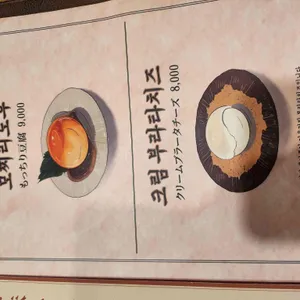 모찌리도후
もっちり豆腐 9,000
크림 부라타치즈
クリームブラータチーズ 8,000